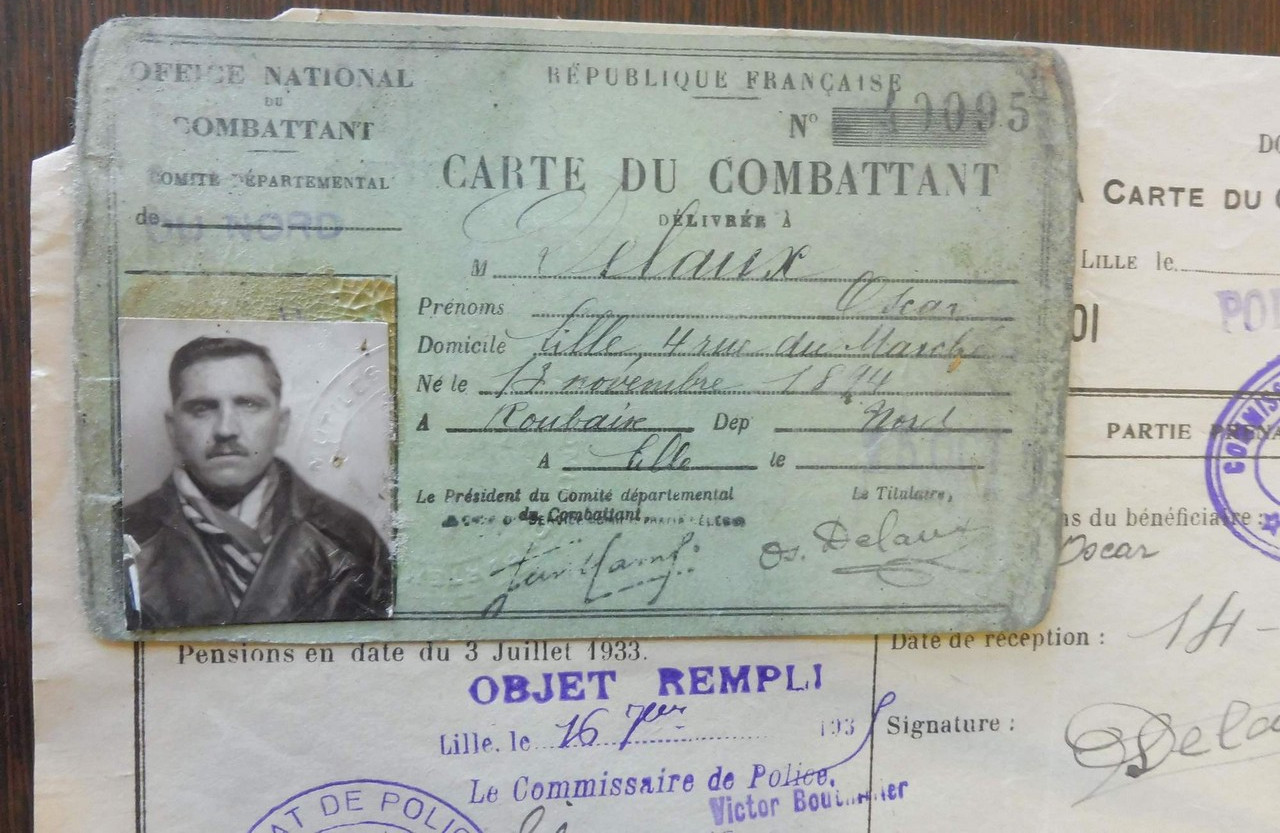 OFFICE NATIONAL
DU
COMBATTANT
COMITÉ DÉPARTEMENTAL
de DU NORD
RÉPUBLIQUE FRANÇAISE
N° 40095
CARTE DU COMBATTANT
DÉLIVRÉE À
M Delaux
Prénoms Oscar
Domicile Lille, 4 rue du Marché
Né le 13 novembre 1894
A Roubaix Dep Nord
A Lille le
Le Président du Comité départemental
du Combattant
Le Titulaire,
Os. Delaux
CARTE DU
LILLE le
PARTIE PRENA
ns du bénéficiaire :
Oscar
Pensions en date du 3 Juillet 1933.
OBJET REMPLI
Lille, le 16 7bre 1935
Le Commissaire de Police,
Victor
AT DE POLIC
Date de réception : 14 -
Signature :
Dela